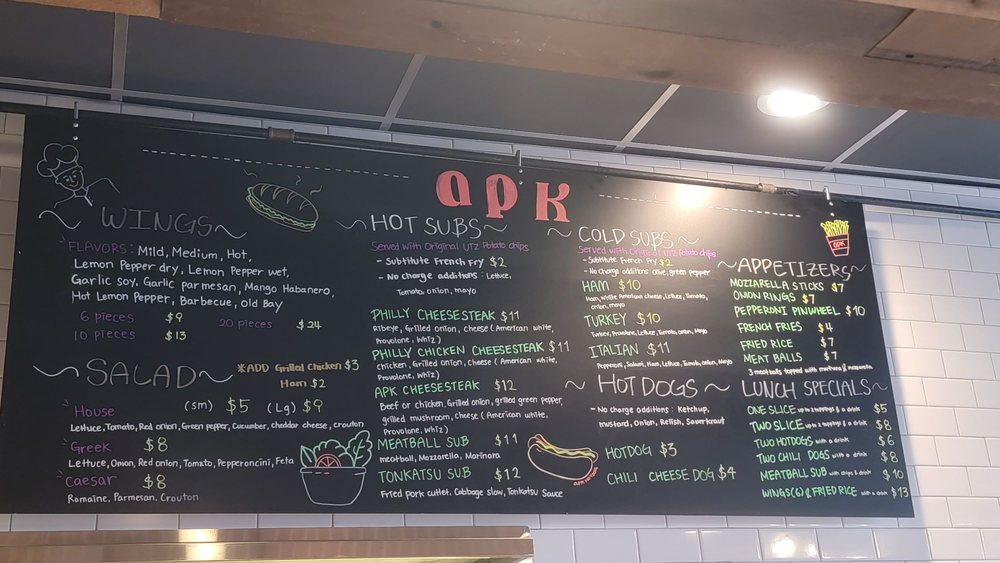 apk
WINGS
FLAVORS: Mild, Medium, Hot,
Lemon Pepper dry, Lemon Pepper wet,
Garlic soy, Garlic parmesan, Mango Habanero,
Hot Lemon Pepper, Barbecue, old Bay
6 pieces $9
20 pieces $24
10 pieces $13
SALAD
*ADD Grilled Chicken $3
Ham $2
House (sm) $5 (Lg) $9
Lettuce, Tomato, Red onion, Green pepper, Cucumber, cheddar cheese, crouton
Greek $8
Lettuce, Onion, Red onion, Tomato, Pepperoncini, Feta
Caesar $8
Romaine, Parmesan, Crouton
HOT SUBS
Served with Original UTZ Potato chips
- Substitute French Fry $2
- No Charge additions: Lettuce,
Tomato, onion, mayo
PHILLY CHEESESTEAK $11
Ribeye, Grilled onion, cheese (American white,
Provolone, Whiz)
PHILLY CHICKEN CHEESESTEAK $11
chicken, Grilled onion, cheese (American white,
Provolone, Whiz)
APK CHEESESTEAK $12
Beef or chicken, Grilled onion, grilled green pepper,
grilled mushroom, cheese (American white,
Provolone, Whiz)
MEATBALL SUB $11
meatball, Mozzarella, Marinara
TONKATSU SUB $12
Fried pork cutlet, Cabbage slaw, Tonkatsu Sauce
COLD SUBS
Served with Original UTZ Potato chips
- Substitute French Fry $2
- No Charge additions olive, green pepper
HAM $10
Ham, white American cheese, Lettuce, Tomato,
onion, mayo
TURKEY $10
Turkey, Provolone, Lettuce, Tomato, onion, Mayo
ITALIAN $11
Pepperoni, Salami, Ham, Lettuce, Tomato, onion, Mayo
HOT DOGS
- No charge additions: Ketchup,
mustard, Onion, Relish, Sauerkraut
HOTDOG $3
CHILI CHEESE DOG $4
apk
APPETIZERS
MOZZARELLA STICKS $7
ONION RINGS $7
PEPPERONI PINWHEEL $10
FRENCH FRIES $4
FRIED RICE $7
MEAT BALLS $7
3 meatballs topped with marinara & mozzarella
LUNCH SPECIALS
ONE SLICE up to 2 toppings & a drink $5
TWO SLICE up to 2 toppings & a drink $8
TWO HOTDOGS with a drink $6
TWO CHILI DOGS with a drink $8
MEATBALL SUB with chips & drink $10
WINGS(6) & FRIED RICE with a drink $13